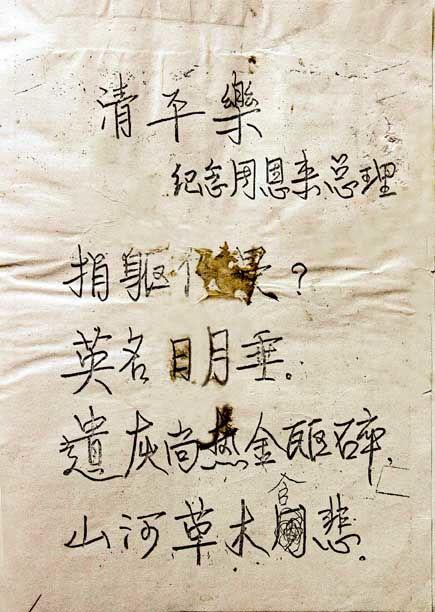 清平樂
纪念周恩来总理
捐躯何?
英名日月垂。
遺灰尚热金瓯碎,
山河草木含悲.